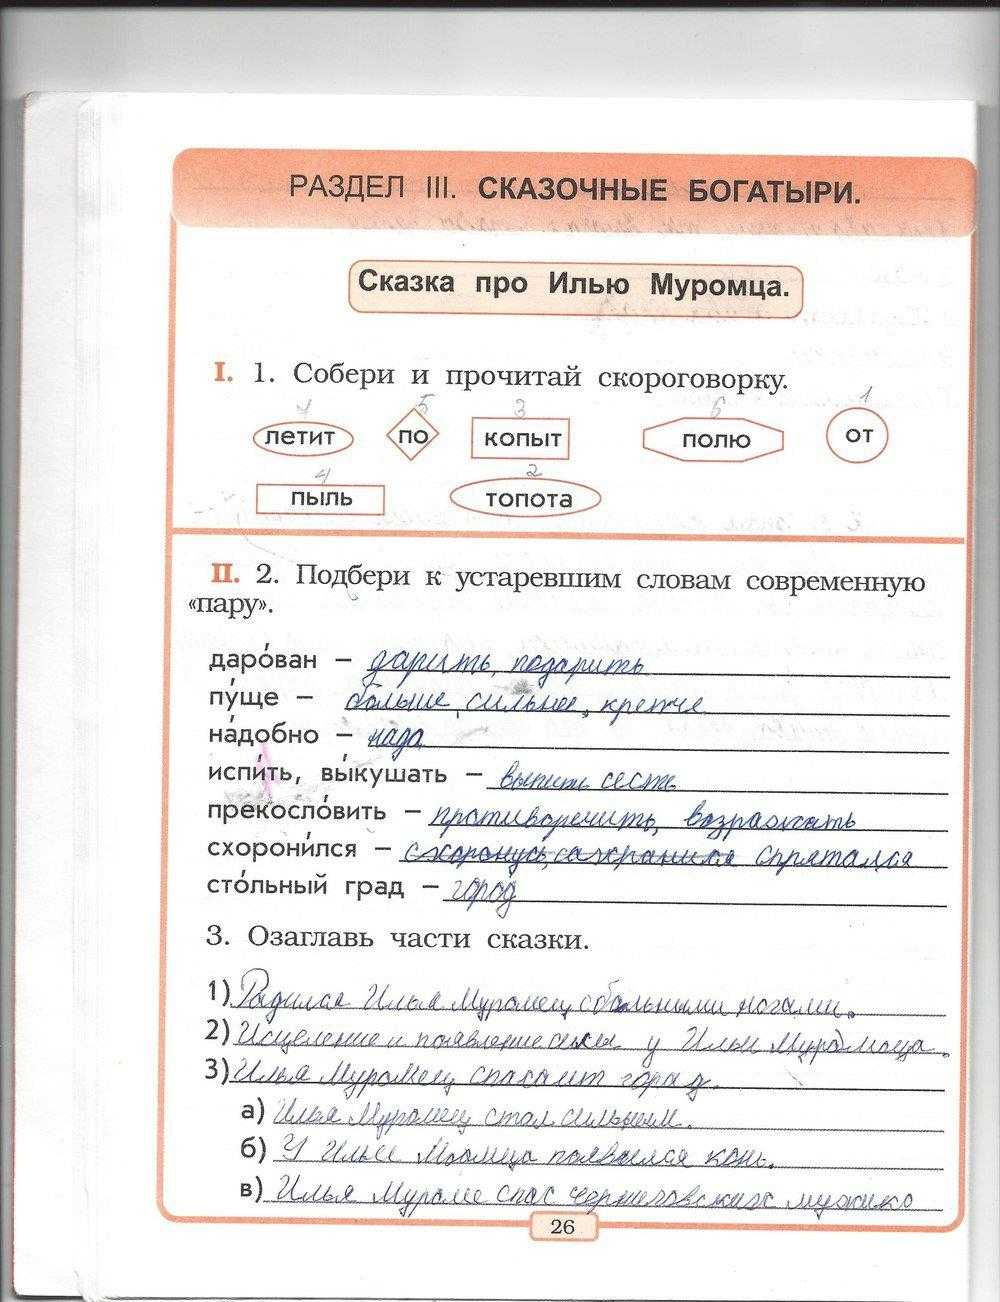 РАЗДЕЛ III. СКАЗОЧНЫЕ БОГАТЫРИ.
Сказка про Илью Муромца.
I. 1. Собери и прочитай скороговорку.
7 5 3 6 1
летит по копыт полю от
4 2
пыль топота
II. 2. Подбери к устаревшим словам современную
«пару».
даро́ван – дарить, подарить
пу́ще – больше, сильнее, крепче
на́добно – надо
испи́ть, вы́кушать – выпить сесть
прекосло́вить – противоречить, возражать
схорони́лся – схоронусь, сахранился спрятался
сто́льный град – город
3. Озаглавь части сказки.
1) Радился Илья Муромец с больными ногами.
2) Исцеление и появление силы у Ильи Муромаца.
3) Илья Муромец спасает город.
а) Илья Муромец стал сильным.
б) У Ильи Моомца появился конь.
в) Илья Муроме спас черниговских мужико
26